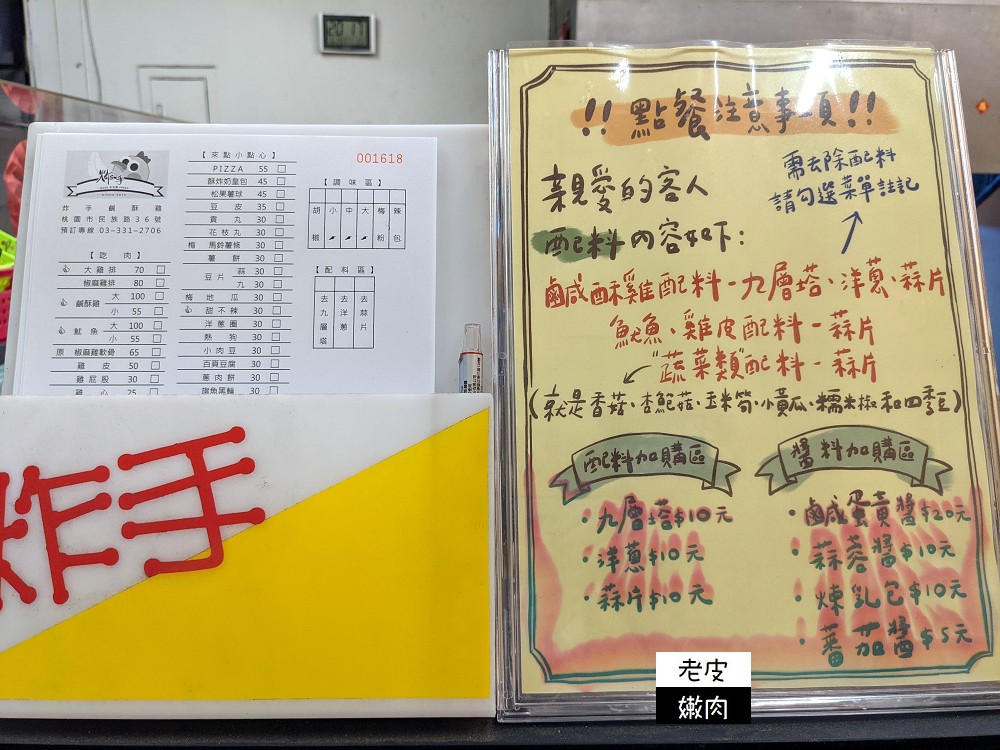 20 11
炸手鹹酥雞
桃園市民族路36號
預訂專線 03-331-2706
【吃肉】
大雞排 70
椒麻雞排 80
鹹酥雞 大 100
小 55
魷魚 大 100
小 55
原 椒麻雞軟骨 65
雞皮 50
雞屁股 30
雞心 25
【來點小點心】
PIZZA 55
酥炸奶皇包 45
松果薯球 45
豆皮 35
貢丸 30
花枝丸 30
梅 馬鈴薯條 30
薯餅 30
豆片 蒜 30
丸 30
梅 地瓜 30
甜不辣 30
洋蔥圈 30
熱狗 30
小肉豆 30
百頁豆腐 30
蔥肉餅 30
旗魚黑輪 30
001618
【調味區】
胡椒 小 中 大 梅粉 辣包
【配料區】
去九層塔 去洋蔥 去蒜片
炸手
!! 點餐注意事項!!
需去除配料
請勾選菜單註記
親愛的客人
配料內容如下:
鹹酥雞配料-九層塔、洋蔥、蒜片
魷魚、雞皮配料-蒜片
"蔬菜類"配料-蒜片
(就是香菇、杏鮑菇、玉米筍、小黃瓜、糯米椒和四季豆)
配料加購區
·九層塔$10元
·洋蔥$10元
·蒜片$10元
醬料加購區
·鹹蛋黃醬$20元
·蒜蓉醬$10元
·煉乳包$10元
·蕃茄醬$5元
老皮
嫩肉